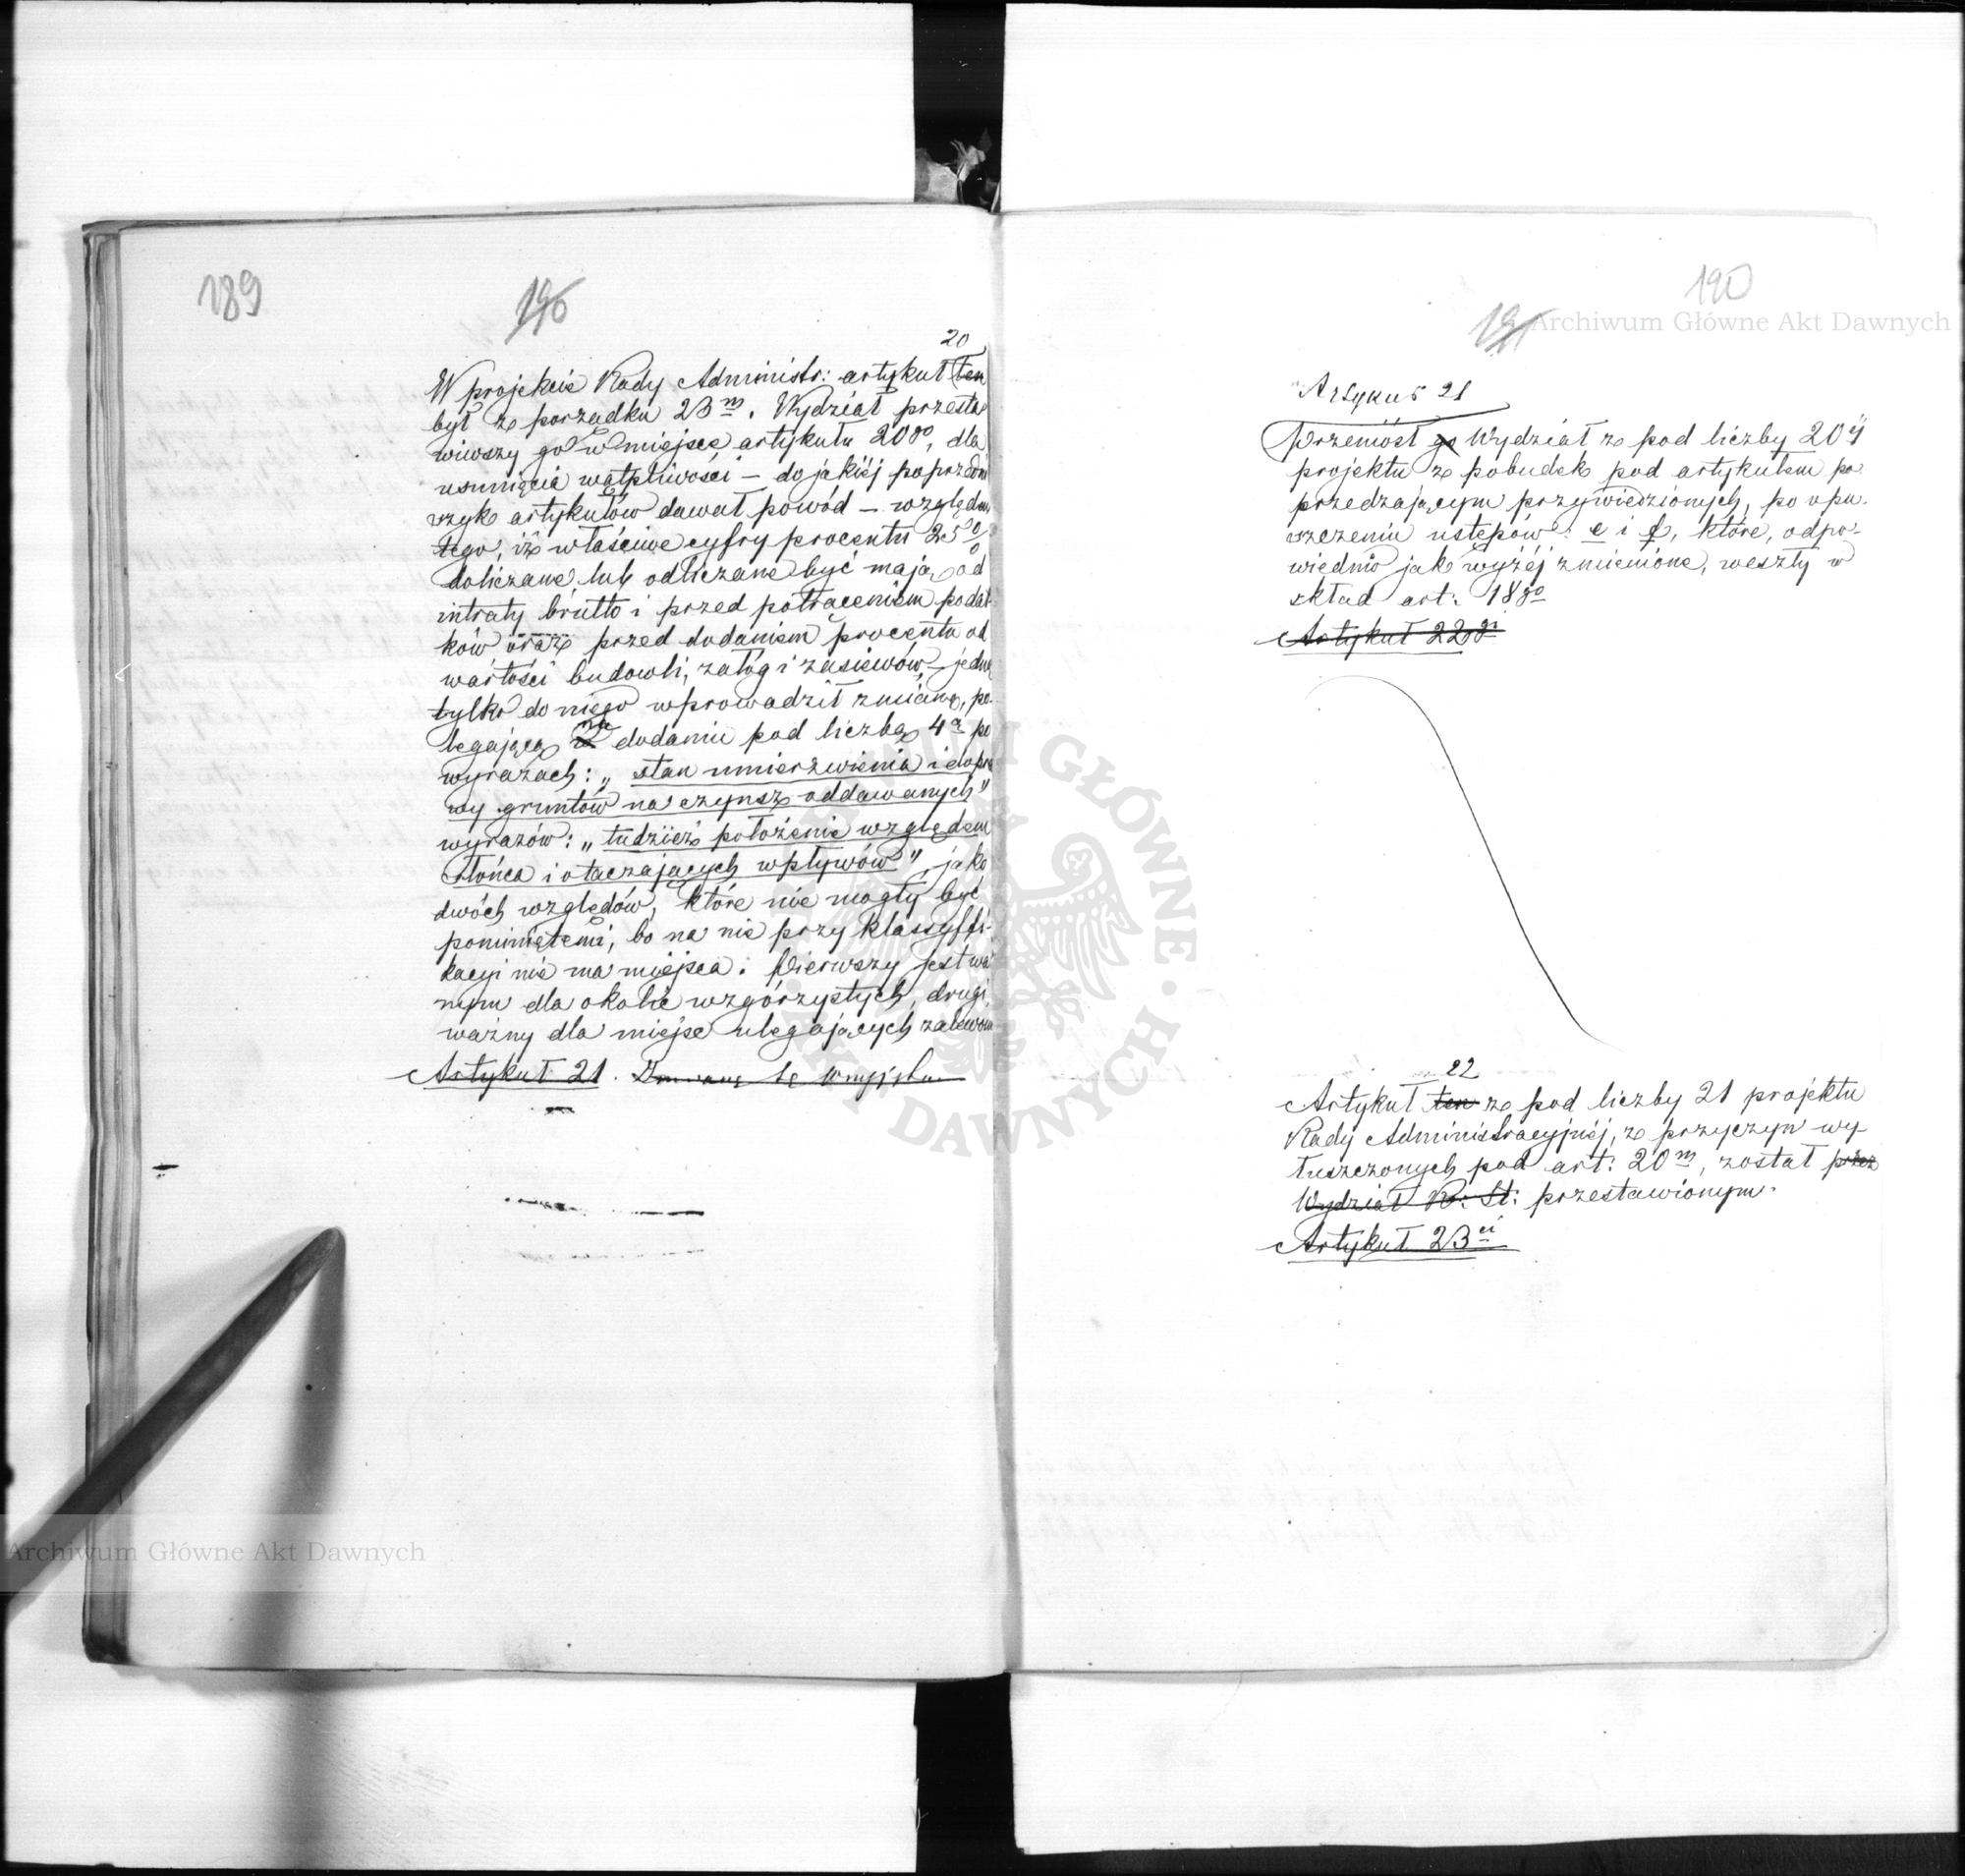 189
190
20
W projekcie Rady Administr: artykuł ten
był z porządku 23m. Wydział przesta
wiwszy go w miejsce artykułu 20go, dla
usunięcia wątpliwości – do jakiéj poprzedni
szyk artykułów dawał powód – względem
tego, iż właściwe cyfry procentu 25%
doliczane lub odliczane być mają od
intraty brutto i przed potrąceniem podat-
ków oraz przed dodaniem procentu od
wartości budowli, załóg i zasiewów, jedną
tylko do niego wprowadził zmianę, po-
legającą na dodaniu pod liczbą 4ą po
wyrazach: „stan umierzwienia i dopra
wy gruntów na czynsz oddawanych"
wyrazów: „tudzież położenie względem
słońca i otaczających wpływów", jako
dwóch względów, które nie mogły być
pominiętemi, bo na nie przy klassyffi-
kacyi nie ma miejsca. Pierwszy jest wa
nym dla okolic wzgórzystych, drugi
ważny dla miejsc ulegających zalewom
Artykuł 21.
190
191
Artykuł 21
Przeniósł go Wydział z pod liczby 20éj
projektu z pobudek pod artykułem po-
przedzającym przywiedzionych, po opu-
szczeniu ustępów: e i f, które, odpo-
wiednio jak wyżéj zmienione, weszły w
skład art: 18go
Artykuł 22gi
22
Artykuł ten z pod liczby 21 projektu
Rady Administracyjnéj, z przyczyn wy
łuszczonych pod art: 20m, został przez
Wydział R: St: przestawionym.
Artykuł 23ci
Archiwum Główne Akt Dawnych
Archiwum Główne Akt Dawnych
ARCHIWUM GŁÓWNE AKT DAWNYCH